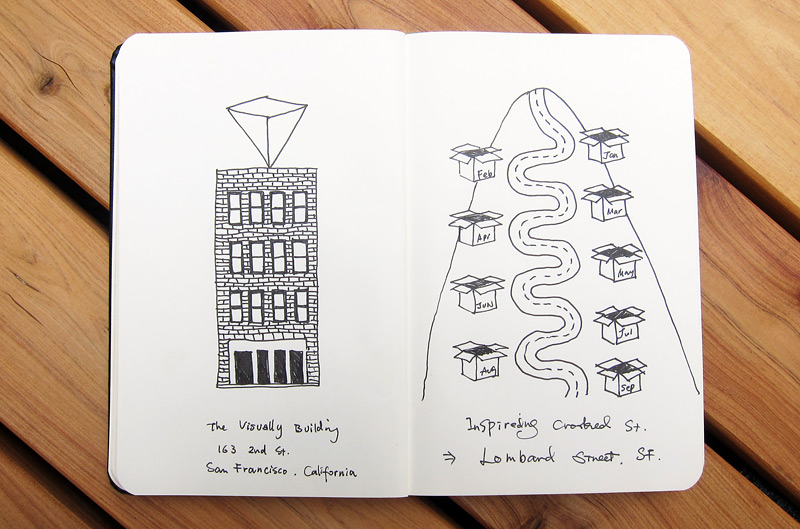 The Visually Building
163 2nd St.
San Francisco, California
Jan
Feb
Mar
Apr
May
Jun
Jul
Aug
Sep
Inspireing Crooked St.
→ Lombard Street, SF.